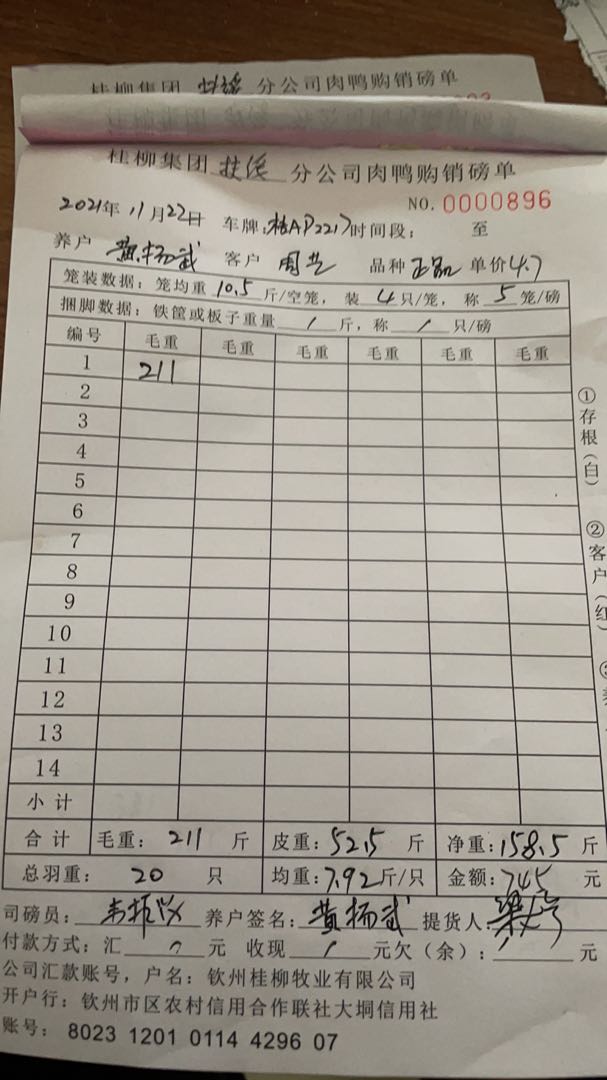 桂柳集团 分公司肉鸭购销磅单
桂柳集团 分公司肉鸭购销磅单
NO. 0000896
2021年11月22日 车牌: 桂AP2217 时间段: 至
养户 黄杨武 客户 周 品种 正品 单价 4.7
笼装数据: 笼均重 10.5 斤/空笼, 装 4 只/笼, 称 5 笼/磅
捆脚数据: 铁筐或板子重量 / 斤, 称 / 只/磅
编号 毛重 毛重 毛重 毛重 毛重 毛重
1 211
2
3
4
5
6
7
8
9
10
11
12
13
14
小计
合计 毛重: 211 斤 皮重: 52.5 斤 净重: 158.5 斤
总羽重: 20 只 均重: 7.92 斤/只 金额: 745 元
司磅员: 养户签名: 黄杨武 提货人:
付款方式: 汇 元 收现 / 元 欠(余): 元
公司汇款账号, 户名: 钦州桂柳牧业有限公司
开户行: 钦州市区农村信用合作联社大垌信用社
账号: 8023 1201 0114 4296 07
①存根(白)
②客户(红)